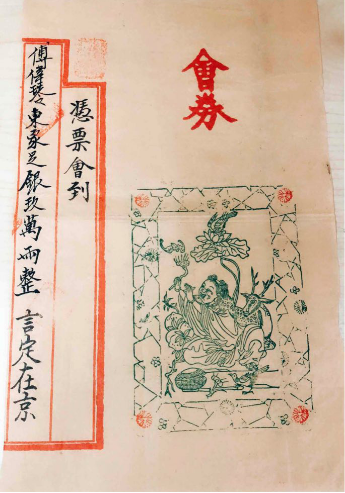 會券
憑票會到
傅東家足銀玖萬兩整 言定在京